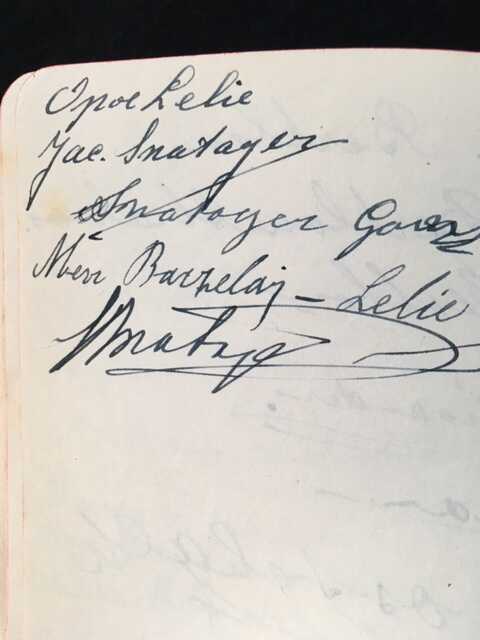 Opoe Lelie
Jac. Snatager
Snatager Goren
Mevr Barzelaij - Lelie
Snatager